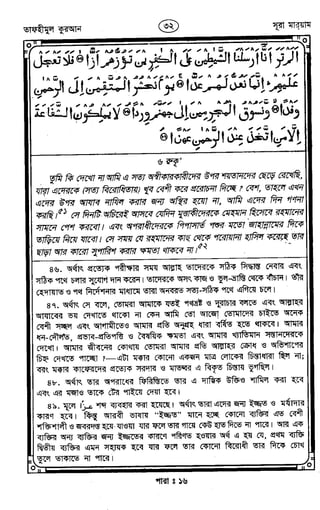 তাফহীমুল কুরআন
৩২
সূরা মারয়াম
اَلَمْ تَرَ اَنَّا اَرْسَلْنَا الشَّيٰطِيْنَ عَلَى الْكٰفِرِيْنَ تَؤُزُّهُمْ اَزًّا ۝ فَلَا تَعْجَلْ
عَلَيْهِمْ ۚ اِنَّمَا نَعُدُّ لَهُمْ عَدًّا ۝ يَوْمَ نَحْشُرُ الْمُتَّقِيْنَ اِلَى الرَّحْمٰنِ
وَفْدًا ۝ وَنَسُوْقُ الْمُجْرِمِيْنَ اِلٰى جَهَنَّمَ وِرْدًا ۝ لَا يَمْلِكُوْنَ الشَّفَاعَةَ
اِلَّا مَنِ اتَّخَذَ عِنْدَ الرَّحْمٰنِ عَهْدًا ۝
৬ রুকূ'
তুমি কি দেখো না আমি এ সত্য অস্বীকারকারীদের উপর শয়তানদের ছেড়ে রেখেছি,
যারা এদেরকে (সত্য বিরোধিতায়) খুব বেশী করে প্ররোচনা দিচ্ছে? বেশ, তাহলে এখন
এদের উপর আযাব নাযিল করার জন্য অস্থির হয়ো না, আমি এদের দিন গণনা
করছি। সে দিনটি অচিরেই আসবে যেদিন মুত্তাকীদেরকে মেহমান হিসেবে রহমানের
সামনে পেশ করবো। এবং অপরাধীদেরকে পিপাসার্ত পশুর মতো জাহান্নামের দিকে
তাড়িয়ে নিয়ে যাবো। সে সময় যে রহমানের কাছ থেকে পরোয়ানা হাসিল করেছে তার
ছাড়া আর কারো সুপারিশ করার ক্ষমতা থাকবে না।
৪৬. অর্থাৎ প্রত্যেক পরীক্ষার সময় আল্লাহ তাদেরকে সঠিক সিদ্ধান্ত নেবার এবং
সঠিক পথে চলার সুযোগ দান করেন। তাদেরকে অসৎ কাজ ও ভুল-ভ্রান্তি থেকে বাঁচান। তাঁর
হেদায়াত ও পথ নির্দেশনার মাধ্যমে তারা অনবরত সত্য-সঠিক পথে এগিয়ে চলে।
৪৭. অর্থাৎ সে বলে, তোমরা আমাকে যতই পথভ্রষ্ট ও দুরাচার বলতে এবং আল্লাহর
আযাবের ভয় দেখাতে থাকো না কেন আমি তো আজো তোমাদের চাইতে অনেক
বেশী সচ্ছল এবং আগামীতেও আমার প্রতি অনুগ্রহ ধারা বর্ষিত হতে থাকবে। আমার
ধন-দৌলত, প্রভাব-প্রতিপত্তি ও বৈষয়িক ক্ষমতা এবং আমার খ্যাতিমান সন্তানদেরকে
দেখো। আমার জীবনের কোথায় তোমরা আমার প্রতি আল্লাহর ক্রোধ ও অভিশাপের
চিহ্ন দেখতে পাচ্ছো?—এটা মক্কার কোনো একজন মাত্র লোকের চিন্তাধারা ছিল না;
বরং মক্কার কাফেরদের প্রত্যেক সরদার ও মাতব্বর এ বিকৃত চিন্তায় ভুগছিল।
৪৮. অর্থাৎ তার অপরাধের ফিরিস্তিতে তার এ দাম্ভিক উক্তিও শামিল করা হবে
এবং এর মজাও তাকে টের পাইয়ে দেয়া হবে।
৪৯. মূলে عِزًّا শব্দ ব্যবহার করা হয়েছে। অর্থাৎ তারা এদের জন্য ইজ্জত ও মর্যাদার
কারণ হবে। কিন্তু আরবী ভাষায় "ইজ্জত" মানে হচ্ছে কোনো ব্যক্তির এত বেশী
শক্তিশালী ও জবরদস্ত হয়ে যাওয়া যার ফলে তার গায়ে কেউ হাত দিতে না পারে। আর এক
ব্যক্তির অন্য ব্যক্তির জন্য ইজ্জতের কারণে পরিণত হওয়ার অর্থ এ হয় যে, প্রথম ব্যক্তি
দ্বিতীয় ব্যক্তির এমন সহায়ক হবে যার ফলে তার কোনো বিরোধী তার দিকে চোখ
তুলে তাকাতে না পারে।
পারা : ১৬